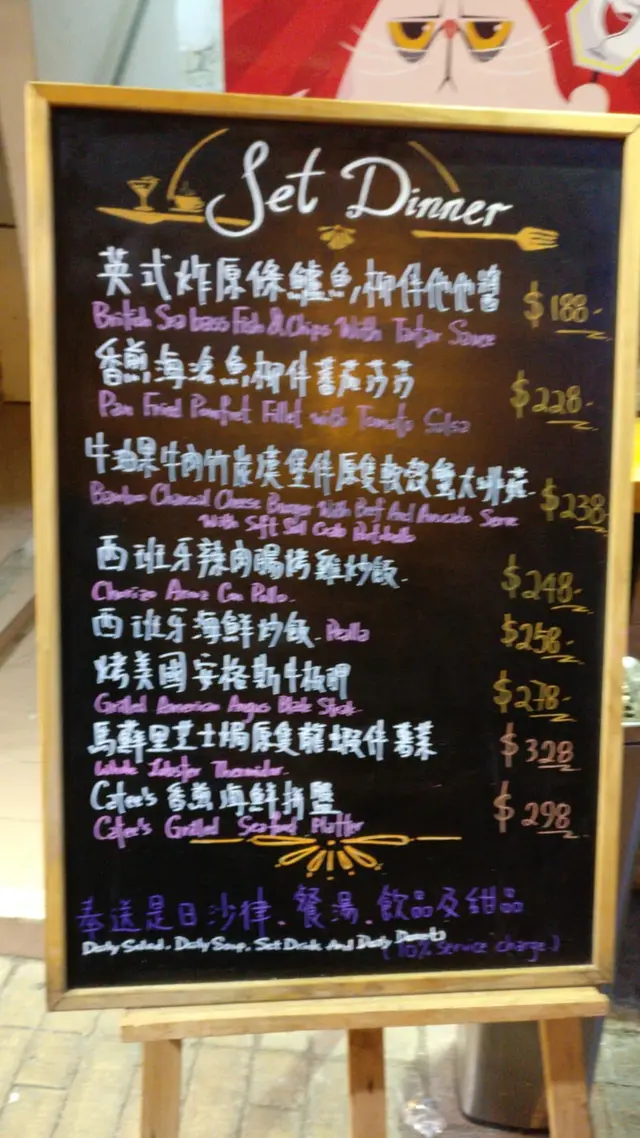 Set Dinner
英式炸原條鱸魚柳伴他他醬 $188-
British Seabass Fish & Chips With Tartar Sauce
香煎海滄魚柳伴蕃茄莎莎 $228-
Pan Fried Pomfret Fillet with Tomato Salsa
牛油果牛肉竹炭漢堡伴原隻軟殼蟹大啡菇 $238-
Bamboo Charcoal Cheese Burger With Beef And Avocado Serve
With Soft Shell Crab
西班牙辣肉腸烤雞炒飯 $248-
Chorizo Arroz Con Pollo.
西班牙海鮮炒飯 Paella $258-
烤美國安格斯牛板腱 $278-
Grilled American Angus Blade Steak
馬蘇里芝士焗原隻龍蝦伴薯菜 $328
Whole Lobster Thermidor.
香煎海鮮拼盤 $298
Grilled Seafood Platter
奉送是日沙律、餐湯、飲品及甜品
Daily Salad, Daily Soup, Set Drink And Daily Desserts
(10% service charge)